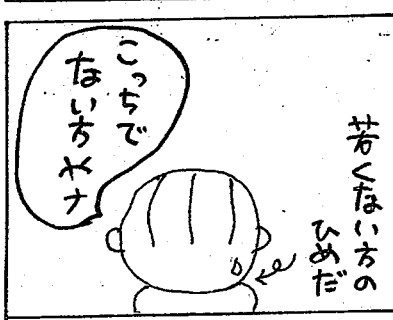 若くない方の
ひめだ
こっちで
ない方やナ